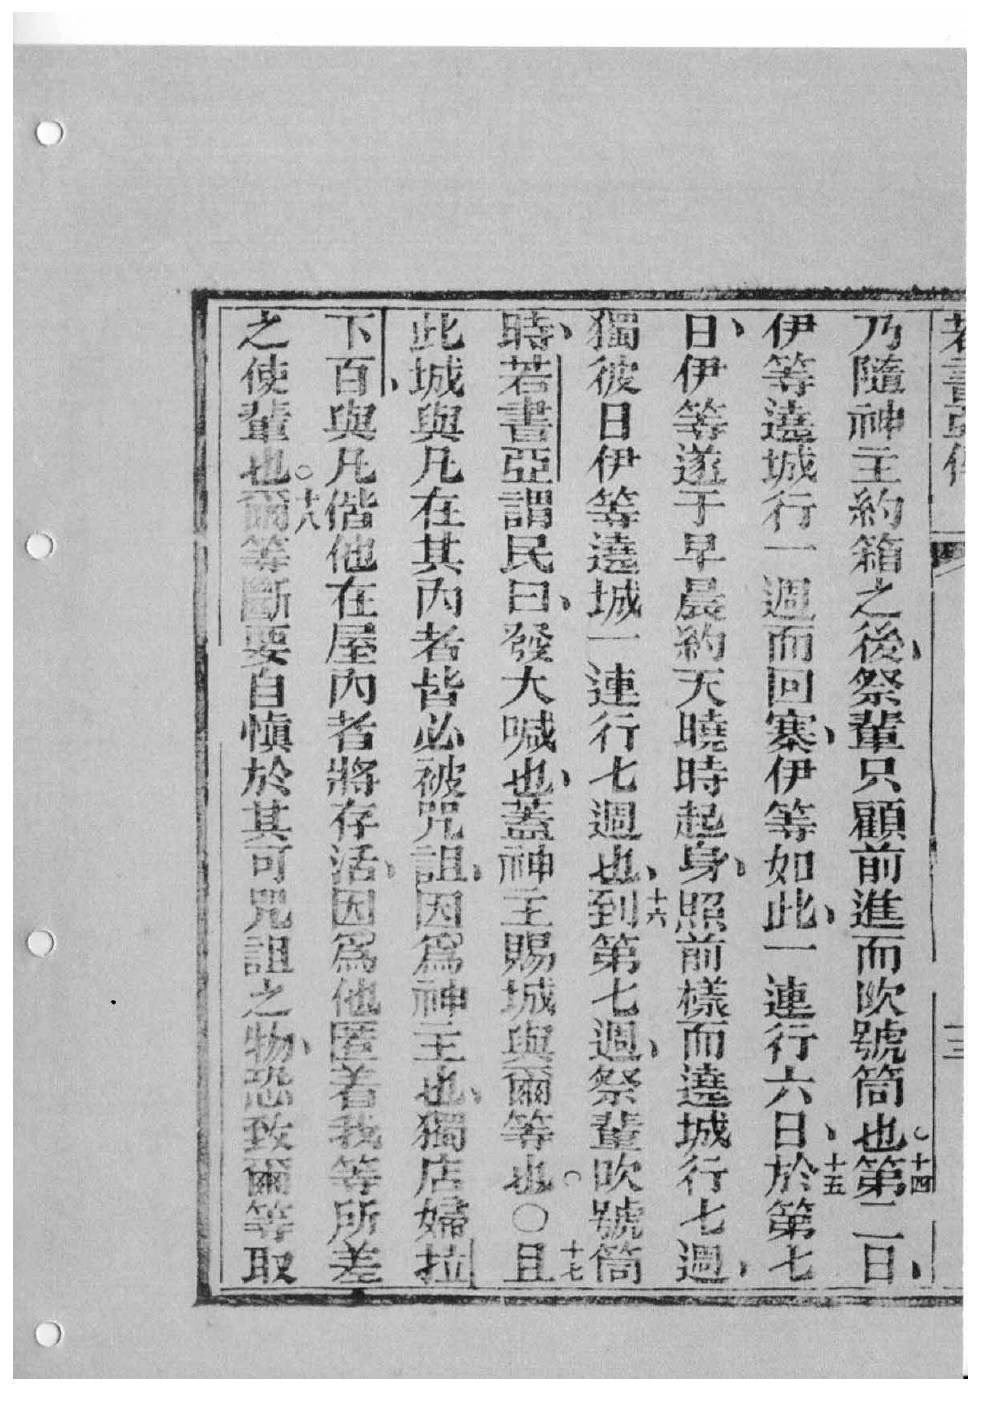 若書亞傳 三
乃隨神主約箱之後、祭輩只顧前進而吹號筒也。十四第二日、
伊等遶城行一週而回寨、伊等如此、一連行六日、十五於第七
日、伊等遂于早晨約天曉時起身、照前樣而遶城行七週、
獨彼日伊等遶城一連行七週也、十六到第七週、祭輩吹號筒
時、若書亞謂民曰、發大喊也、蓋神主賜城與爾等也。○十七且
此城與凡在其內者皆必被咒詛、因為神主也、獨店婦拉
下百、與凡偕他在屋內者將存活、因為他匿着我等所差
之使輩也。十八爾等斷要自慎於其可咒詛之物、恐致爾等取